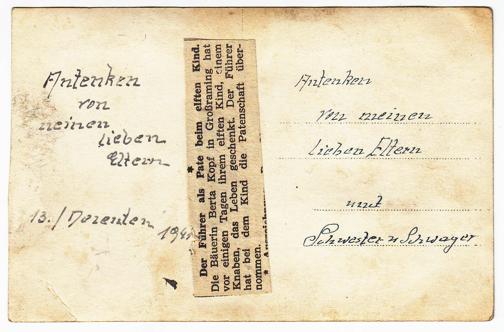 Antenken
von
meinen
lieben
Eltern
13./Dezenten
194
*
Der Führer als Pate beim elften Kind.
Die Bäuerin Berta Kopf in Großraming hat
vor einigen Tagen ihrem elften Kind, einem
Knaben, das Leben geschenkt. Der Führer
hat bei dem Kind die Patenschaft über-
nommen.
*
Antenken
von meinen
lieben Eltern
und
Schwester u Schwager